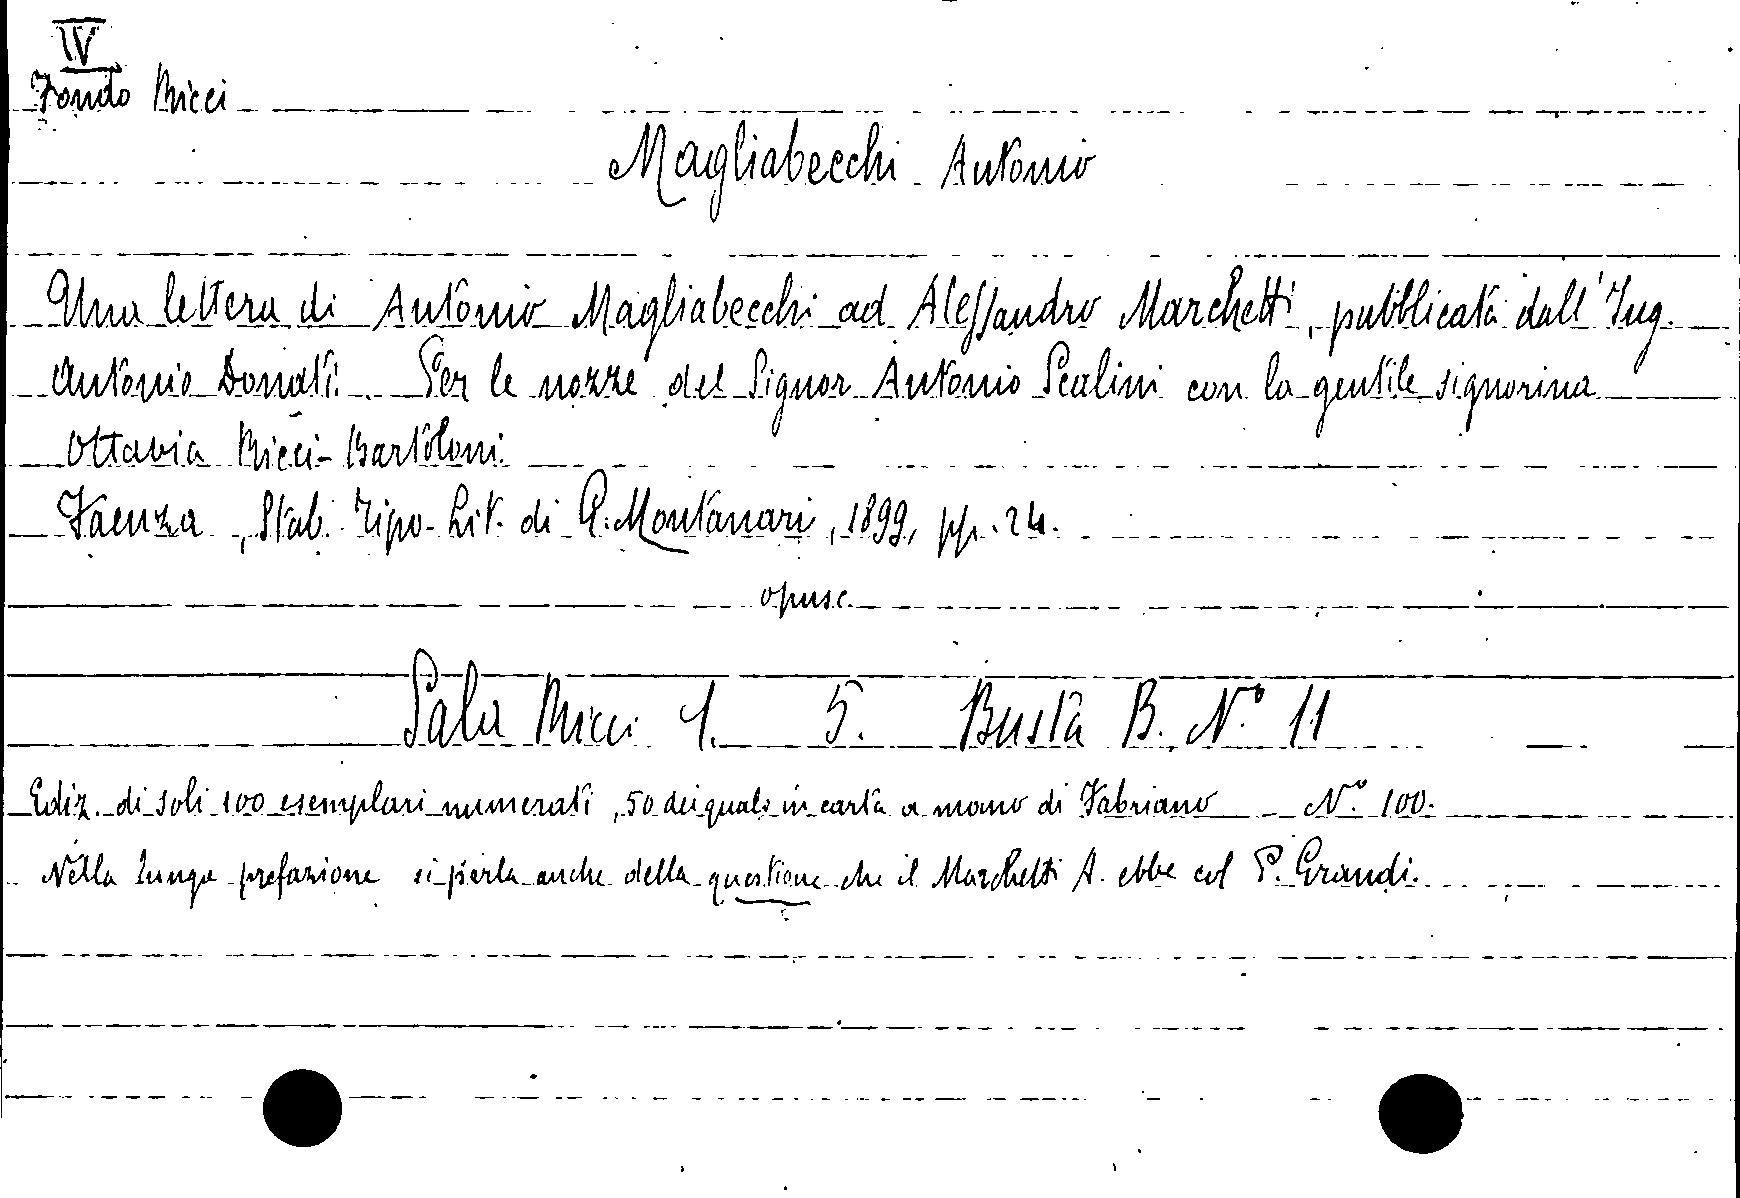 IV
Fondo Ricci
Magliabecchi Antonio
Una lettera di Antonio Magliabecchi ad Alessandro Marchetti, pubblicata dall'Ing.
Antonio Donati. Per le nozze del Signor Antonio Scalini con la gentile signorina
Ottavia Ricci-Bartoloni.
Faenza, Stab. Tipo-Lit. di G. Montanari, 1899, pp. 24.
opusc.
Sala Ricci 1. 5. Busta B. N.° 11
Ediz. di soli 100 esemplari numerati, 50 dei quali in carta a mano di Fabriano N.° 100.
Nella lunga prefazione si parla anche della questione che il Marchetti A. ebbe col P. Grandi.